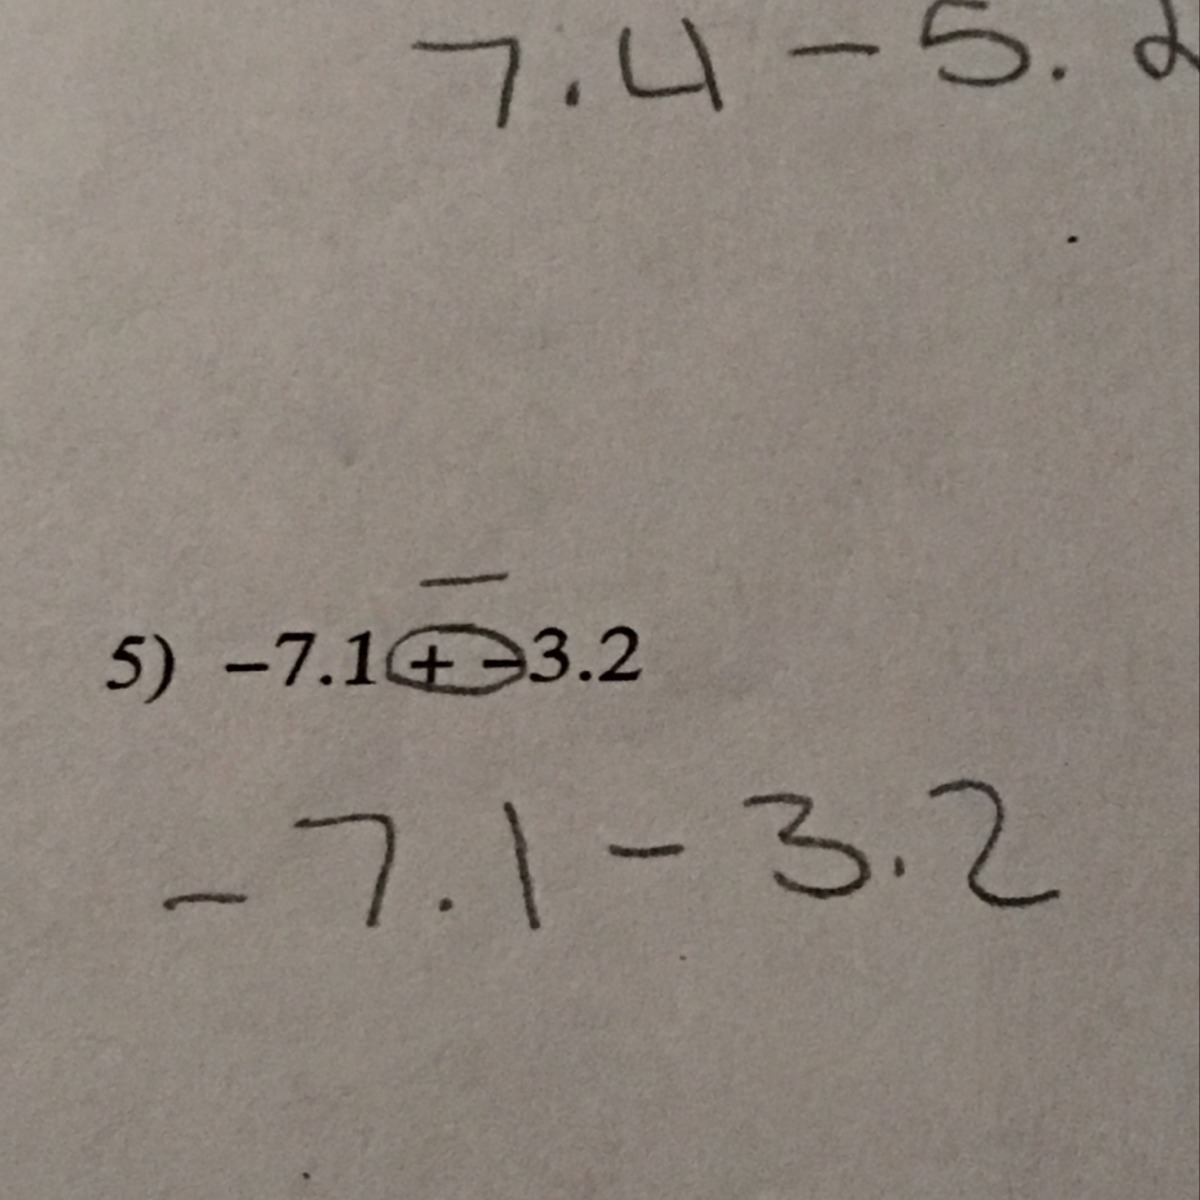 7.4 - 5.2
—
5) −7.1 + −3.2
- 7.1 - 3.2